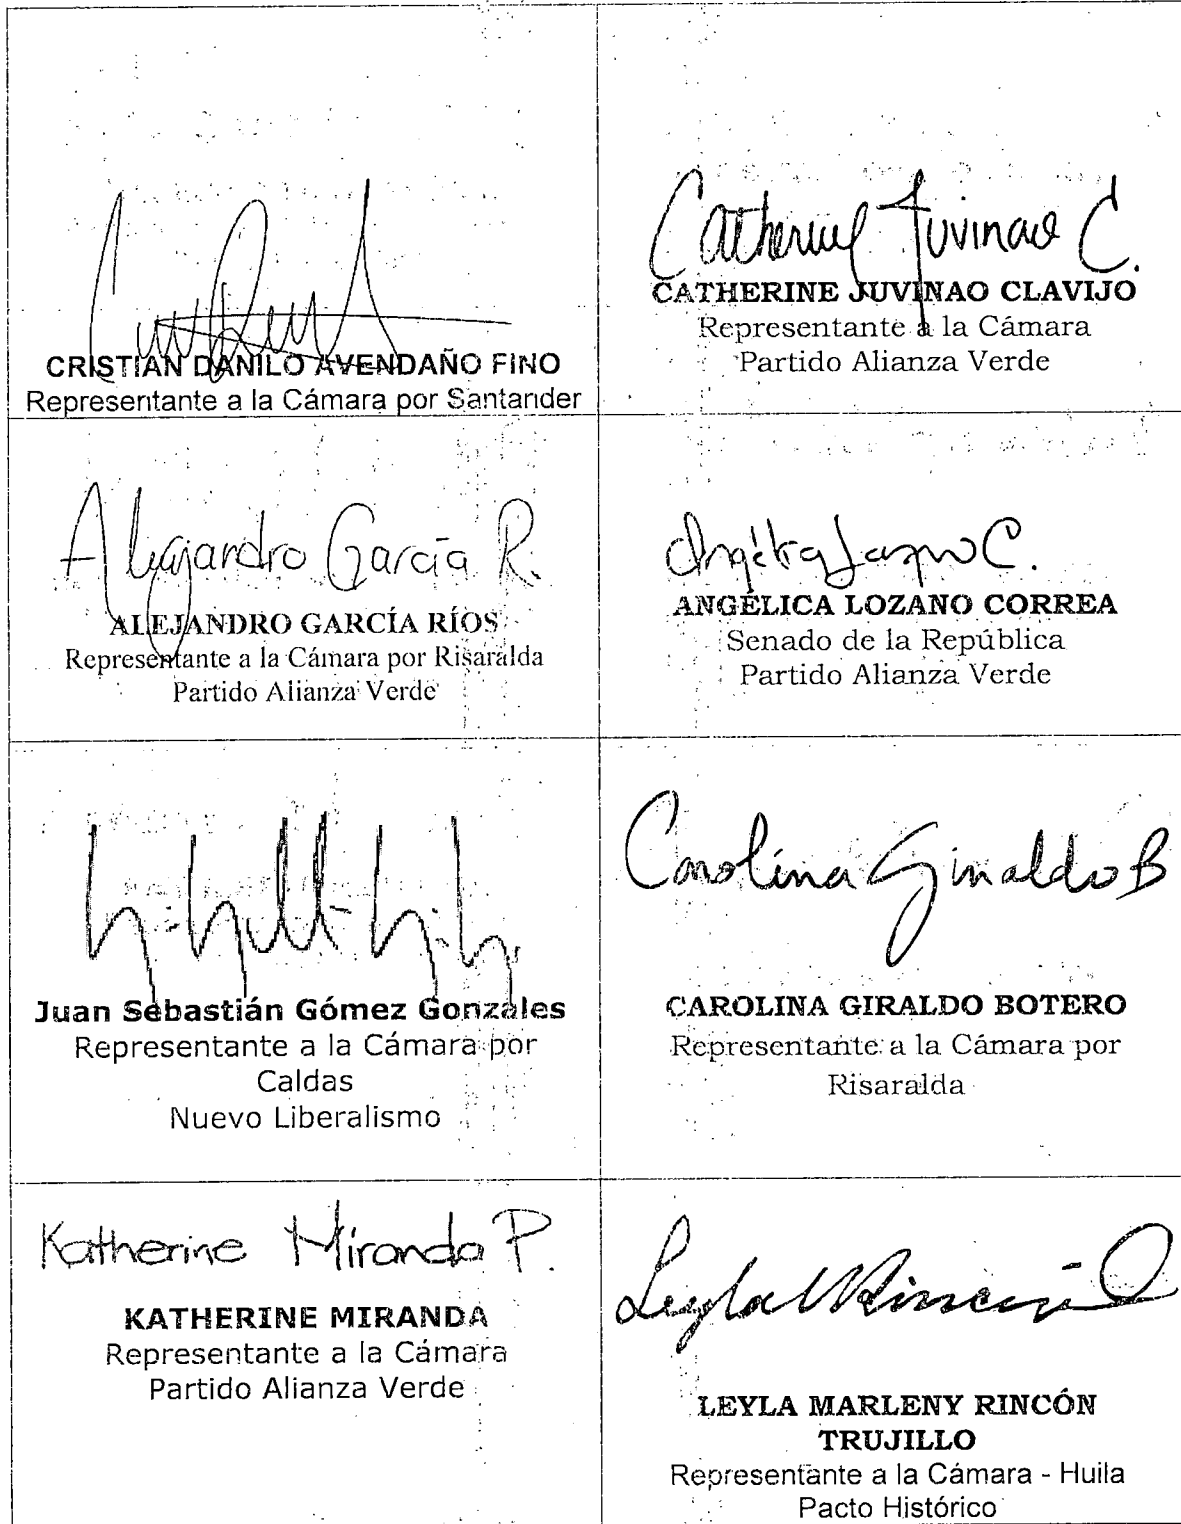 Catherine Juvinao C.
CRISTIAN DANILO AVENDAÑO FINO
Representante a la Cámara por Santander
CATHERINE JUVINAO CLAVIJO
Representante a la Cámara
Partido Alianza Verde
Alejandro García R.
ALEJANDRO GARCÍA RÍOS
Representante a la Cámara por Risaralda
Partido Alianza Verde
Angélica Lozano C.
ANGÉLICA LOZANO CORREA
Senado de la República
Partido Alianza Verde
Juan Sebastián Gómez Gonzáles
Representante a la Cámara por
Caldas
Nuevo Liberalismo
Carolina Giraldo B
CAROLINA GIRALDO BOTERO
Representante a la Cámara por
Risaralda
Katherine Miranda P.
KATHERINE MIRANDA
Representante a la Cámara
Partido Alianza Verde
Leyla M Rincón
LEYLA MARLENY RINCÓN
TRUJILLO
Representante a la Cámara - Huila
Pacto Histórico